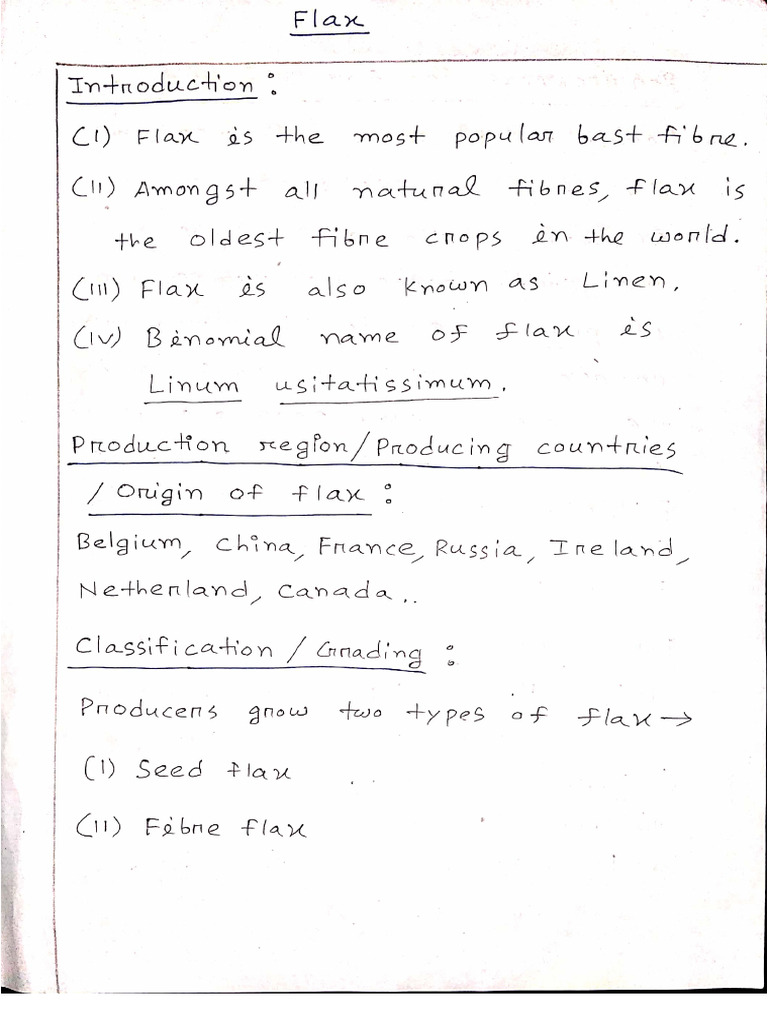 Flax
Introduction :
(I) Flax is the most popular bast fibre.
(II) Amongst all natural fibres, flax is
the oldest fibre crops in the world.
(III) Flax is also known as Linen.
(IV) Binomial name of flax is
Linum usitatissimum.
Production region/Producing countries
/ Origin of flax :
Belgium, China, France, Russia, Ireland,
Netherland, Canada..
Classification / Grading :
Producers grow two types of flax →
(I) Seed flax
(II) Fibre flax